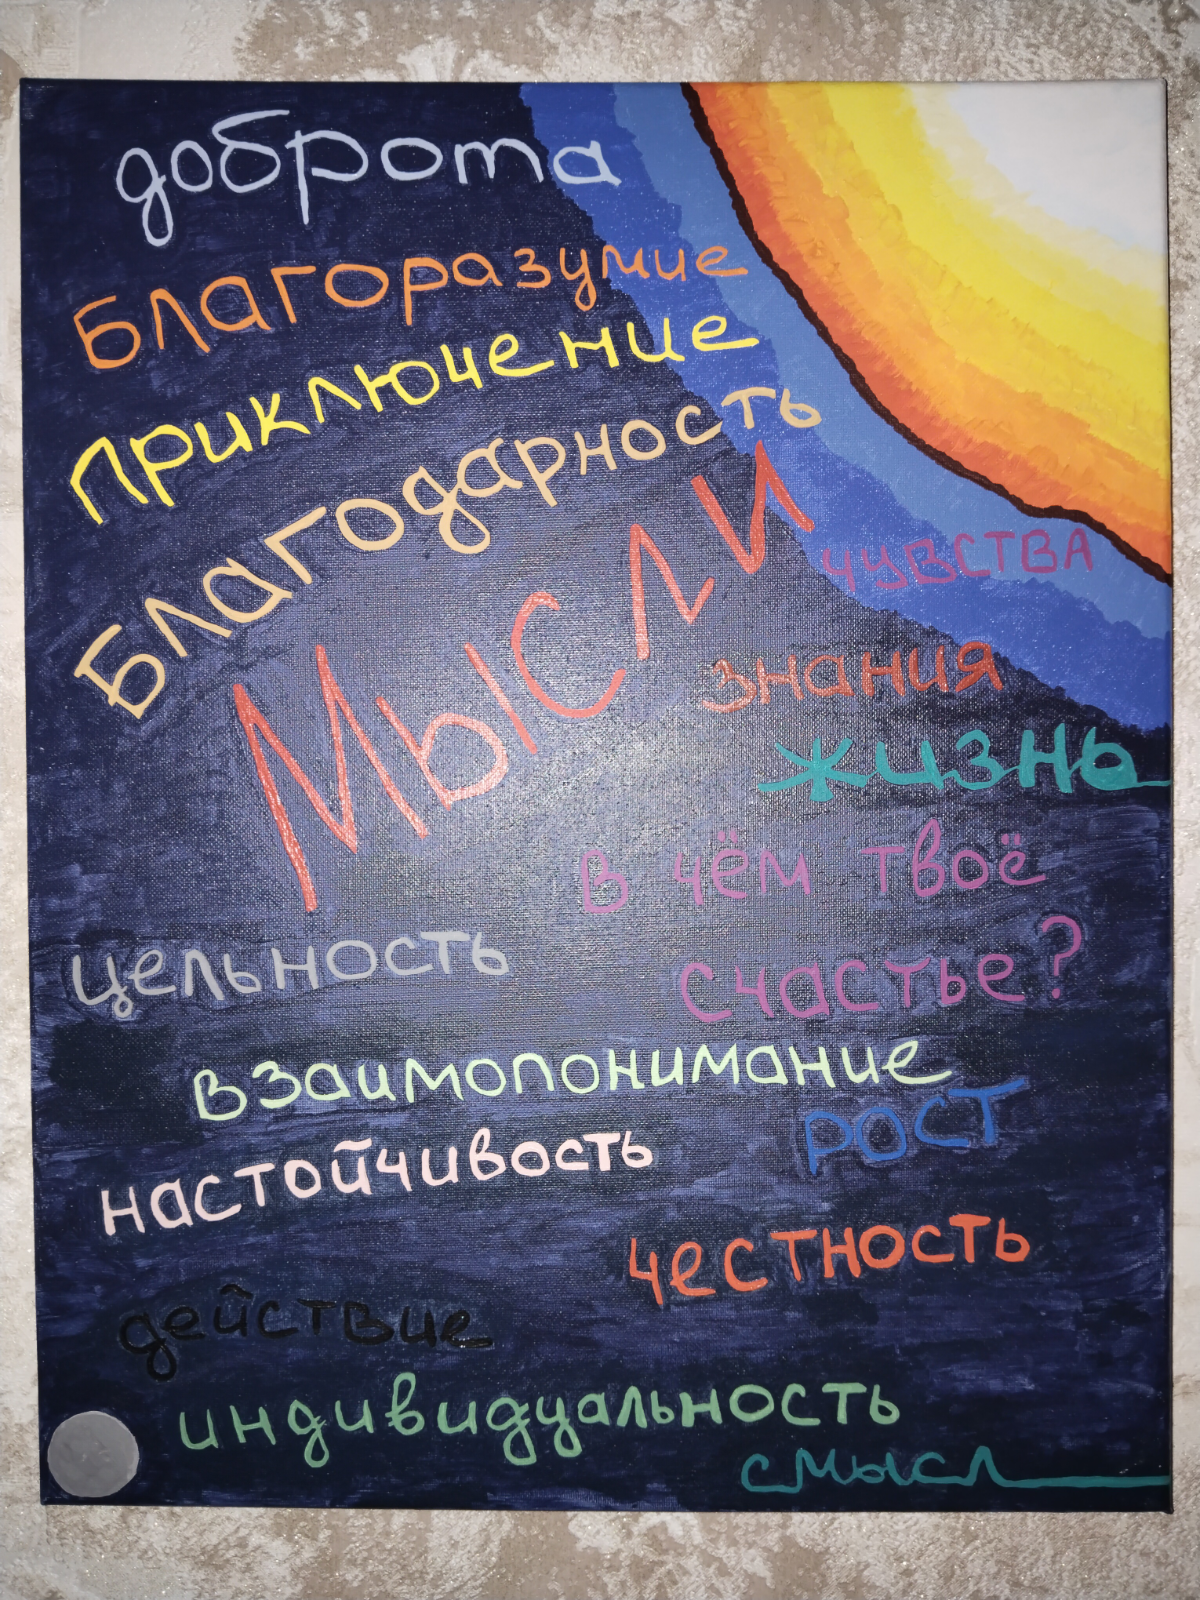 доброта
Благоразумие
Приключение
Благодарность
Мысли
чувства
знания
жизнь
в чём твоё
счастье?
цельность
взаимопонимание
рост
настойчивость
честность
действие
индивидуальность
смысл